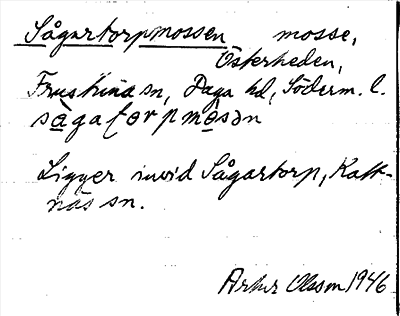 Sågartorpmossen mosse,
Österheden,
Frustuna sn, Daga hd, Söderm. l.
sågatorpmòsən
Ligger invid Sågartorp, Katt-
näs sn.
Artur Olsson 1946